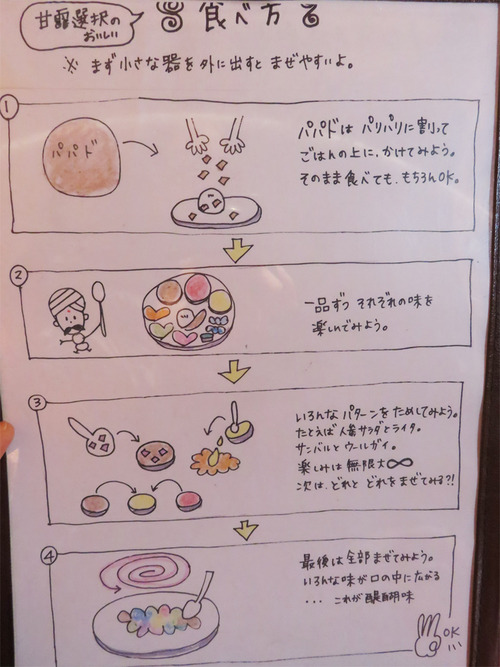 甘露選択の
おいしい
食べ方
※ まず小さな器を外に出すと まぜやすいよ。
①
パパド
パパドは パリパリに割って
ごはんの上に、かけてみよう。
そのまま食べても、もちろんOK。
②
一品ずつ それぞれの味を
楽しんでみよう。
③
いろんな パターンを ためしてみよう。
たとえば 人参サラダとライタ。
サンバルと ウールガイ。
楽しみは 無限大∞
次は、どれと どれをまぜてみる?!
④
最後は全部まぜてみよう。
いろんな味が口の中に広がる
・・・ これが醍醐味
OK